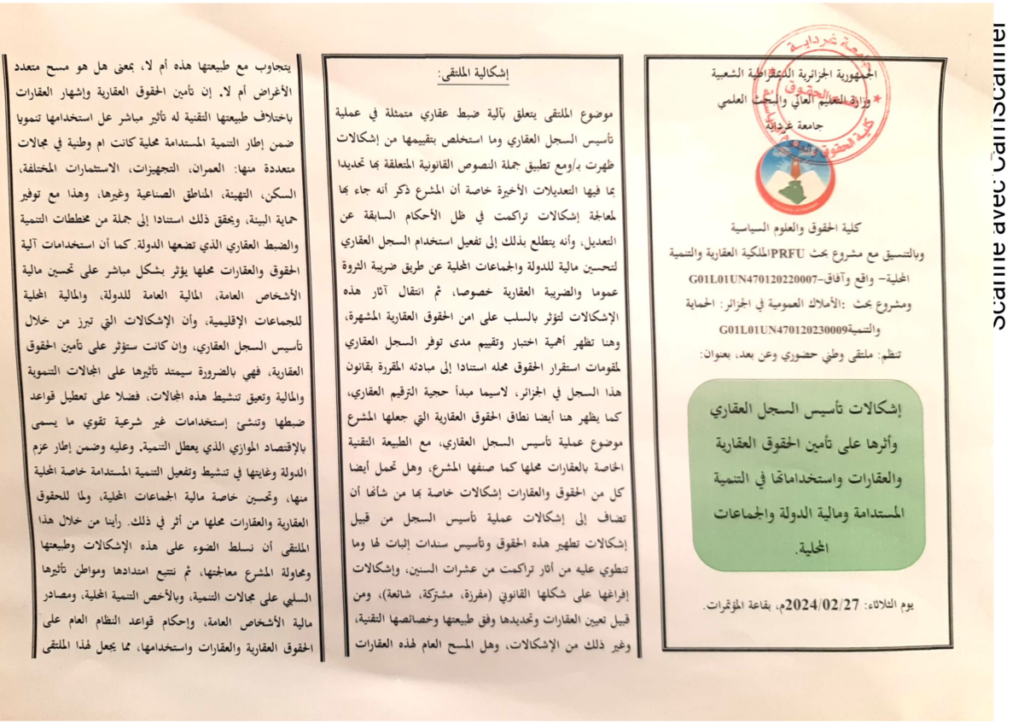 الجمهورية الجزائرية الديمقراطية الشعبية
وزارة التعليم العالي والبحث العلمي
جامعة غرداية
كلية الحقوق والعلوم السياسية
وبالتنسيق مع مشروع بحث PRFUالملكية العقارية والتنمية
المحلية– واقع وآفاق–G01L01UN470120220007
ومشروع بحث :الأملاك العمومية في الجزائر: الحماية
والتنميةG01L01UN470120230009
تنظم: ملتقى وطني حضوري وعن بعد، بعنوان:
إشكالات تأسيس السجل العقاري
وأثرها على تأمين الحقوق العقارية
والعقارات واستخداماتها في التنمية
المستدامة ومالية الدولة والجماعات
المحلية.
يوم الثلاثاء: 2024/02/27م، بقاعة المؤتمرات.
إشكالية الملتقى:
موضوع الملتقى يتعلق بآلية ضبط عقاري متمثلة في عملية
تأسيس السجل العقاري وما استخلص بتقييمها من إشكالات
ظهرت بـ/ومع تطبيق جملة النصوص القانونية المتعلقة بها تحديدا
بما فيها التعديلات الأخيرة خاصة أن المشرع ذكر أنه جاء بها
لمعالجة إشكالات تراكمت في ظل الأحكام السابقة عن
التعديل، وأنه يتطلع بذلك إلى تفعيل استخدام السجل العقاري
لتحسين مالية للدولة والجماعات المحلية عن طريق ضريبة الثروة
عموما والضريبة العقارية خصوصا، ثم انتقال آثار هذه
الإشكالات لتؤثر بالسلب على امن الحقوق العقارية المشهرة،
وهنا تظهر أهمية اختبار وتقييم مدى توفر السجل العقاري
لمقومات استقرار الحقوق محله استنادا إلى مبادئه المقررة بقانون
هذا السجل في الجزائر، لاسيما مبدأ حجية الترقيم العقاري،
كما يظهر هنا أيضا نطاق الحقوق العقارية التي جعلها المشرع
موضوع عملية تأسيس السجل العقاري، مع الطبيعة التقنية
الخاصة بالعقارات محلها كما صنفها المشرع، وهل تحمل أيضا
كل من الحقوق والعقارات إشكالات خاصة بها من شأنها أن
تضاف إلى إشكالات عملية تأسيس السجل من قبيل
إشكالات تطهير هذه الحقوق وتأسيس سندات إثبات لها وما
تنطوي عليه من أثار تراكمت من عشرات السنين، وإشكالات
إفراغها على شكلها القانوني (مفرزة، مشتركة، شائعة)، ومن
قبيل تعيين العقارات وتحديدها وفق طبيعتها وخصائصها التقنية،
وغير ذلك من الإشكالات، وهل المسح العام لهذه العقارات
يتجاوب مع طبيعتها هذه أم لا، بمعنى هل هو مسح متعدد
الأغراض أم لا. إن تأمين الحقوق العقارية وإشهار العقارات
باختلاف طبيعتها التقنية له تأثير مباشر عل استخدامها تنمويا
ضمن إطار التنمية المستدامة محلية كانت ام وطنية في مجالات
متعددة منها: العمران، التجهيزات، الاستثمارات المختلفة،
السكن، التهيئة، المناطق الصناعية وغيرها، وهذا مع توفير
حماية البيئة، ويحقق ذلك استنادا إلى جملة من مخططات التنمية
والضبط العقاري الذي تضعها الدولة. كما أن استخدامات آلية
الحقوق والعقارات محلها يؤثر بشكل مباشر على تحسين مالية
الأشخاص العامة، المالية العامة للدولة، والمالية المحلية
للجماعات الإقليمية، وأن الإشكالات التي تبرز من خلال
تأسيس السجل العقاري، وإن كانت ستؤثر على تأمين الحقوق
العقارية، فهي بالضرورة سيمتد تأثيرها على المجالات التنموية
والمالية وتعيق تنشيط هذه المجالات، فضلا على تعطيل قواعد
ضبطها وتنشئ إستخدامات غير شرعية تقوي ما يسمى
بالإقتصاد الموازي الذي يعطل التنمية. وعليه وضمن إطار عزم
الدولة وغايتها في تنشيط وتفعيل التنمية المستدامة خاصة المحلية
منها، وتحسين خاصة مالية الجماعات المحلية، ولما للحقوق
العقارية والعقارات محلها من أثر في ذلك. رأينا من خلال هذا
الملتقى أن نسلط الضوء على هذه الإشكالات وطبيعتها
ومحاولة المشرع معالجتها، ثم نتتبع امتدادها ومواطن تأثيرها
السلبي على مجالات التنمية، وبالأخص التنمية المحلية، ومصادر
مالية الأشخاص العامة، وإحكام قواعد النظام العام على
الحقوق العقارية والعقارات واستخدامها، مما يجعل لهذا الملتقى
Scanné avec CamScanner